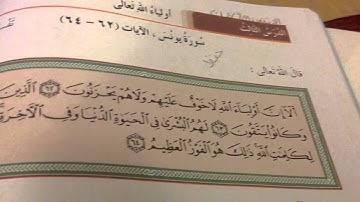 الدرس الثالث
أولياء الله تعالى
سورة يونس ، الآيات (٦٢ - ٦٤)
قال الله تعالى :
أَلَآ إِنَّ أَوْلِيَآءَ ٱللَّهِ لَا خَوْفٌ عَلَيْهِمْ وَلَا هُمْ يَحْزَنُونَ ٦٢ ٱلَّذِينَ
وَكَانُوا۟ يَتَّقُونَ ٦٣ لَهُمُ ٱلْبُشْرَىٰ فِى ٱلْحَيَوٰةِ ٱلدُّنْيَا وَفِى ٱلْـَٔاخِرَةِ
لِكَلِمَـٰتِ ٱللَّهِ ذَٰلِكَ هُوَ ٱلْفَوْزُ ٱلْعَظِيمُ ٦٤